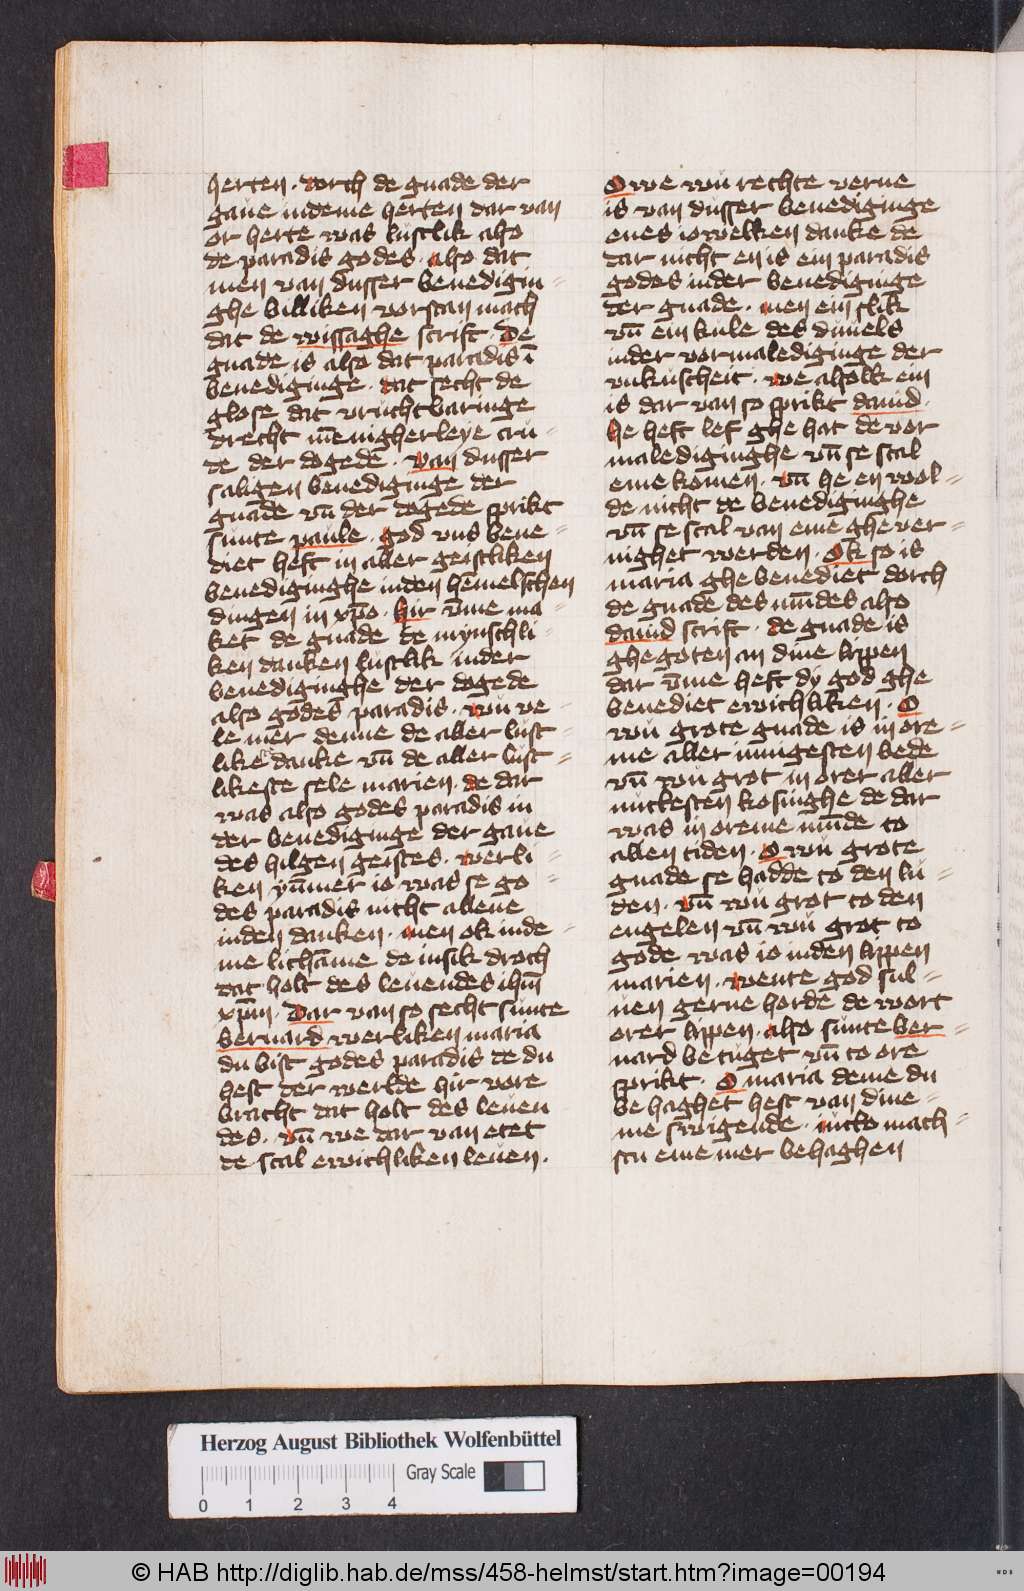 herten · dorch de gnade der
gaue indeme herten dar van
or herte was lustlik also
de paradis godes · also dat
men van dusser benedigin-
ghe billiken vorstan mach
dat de wissaghe scrift · De
gnade is also dat paradis ī
benediginge · dat secht de
glose dat vruchtbaringe
drecht mēnigherleye cru-
de der dogedē · Van dusser
saligen benediginge der
gnade vn̄ der dogede sprikt
sunte paule · god vns bene-
diet heft in aller geistliken
benediginghe inden hēmelschen
dingen in xp̄o · hir v̄me ma-
ket de gnade de mynschli-
ken danken lustlik inder
benediginghe der dogede
also godes paradis · wu ve-
le mer denne de aller lust-
like danke vn̄ de aller lust-
likeste sele marien · de dar
was also godes paradis in
der benediginge der gaue
des hilgen geistes · werli-
ken yūmer io was se go-
des paradis nicht allene
inden danken · men ok inde-
me lichāme de insik droch
dat holt des leuendes ih̄m
xp̄m · Dar van so secht sunte
bernard werliken maria
du bist godes paradis de du
hest der werlde hir vore
bracht dat holt des leuen
des · vn̄ we dar van etet
de scal ewichliken leuen ·
Owe wu rechte verne
is van dusser benediginge
enes iowelken danke de
dar nicht en is ein paradis
godes inder benediginge
der gnade · men ein slik
vn̄ ein kule des duuels
inder vormalediginge der
vnkuscheit · we alsolk ein
is dar van so sprikt dauid ·
he heft lef ghe hat de vor
malediginghe vn̄ se scal
eme komen · vn̄ he en wol-
de nicht de benediginghe
vn̄ se scal van eme ghever-
nighet werden · Ok so is
maria ghe benediet dorch
de gnade des mūdes also
dauid scrift · de gnade is
ghe goten an dine lippen
dar v̄me heft dy god ghe
benediet ewichliken · O
wu grote gnade is in ore-
me aller innigesten bede
vn̄ wu grot in orer aller
nutkesten kosinghe de dar
was in oreme mūde to
allen tiden · O wu grote
gnade se hadde to den lu-
den · vn̄ wu grot to den
engelen vn̄ wu grot to
gode was io inden lippen
marien · wente god sul-
uen gerne horde de wort
orer lippen · also sunte ber-
nard be tuget vn̄ to ore
sprikt · O maria deme du
be haghet hest van dine-
me swigende · nicto mach-
stu eme mer behaghen
Herzog August Bibliothek Wolfenbüttel
Gray Scale
0 1 2 3 4
© HAB http://diglib.hab.de/mss/458-helmst/start.htm?image=00194